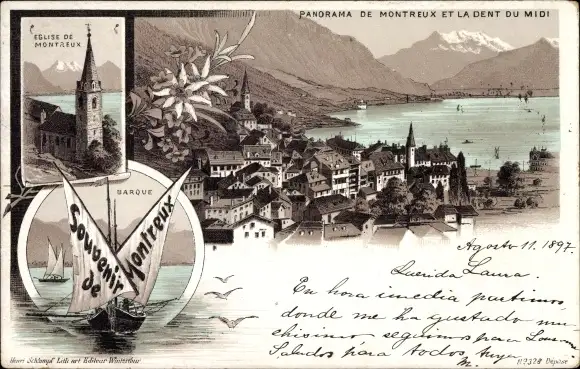 PANORAMA DE MONTREUX ET LA DENT DU MIDI
EGLISE DE
MONTREUX
BARQUE
Souvenir
de
Montreux
Agosto 11. 1897.
Querida Laura.
En hora i media partimos,
donde me ha gustado mu-
chisimo seguimos para
Saludos para todos suyo
M.
Henri Schlumpf Lith. art. Editeur Winterthur
No 2328 Déposé